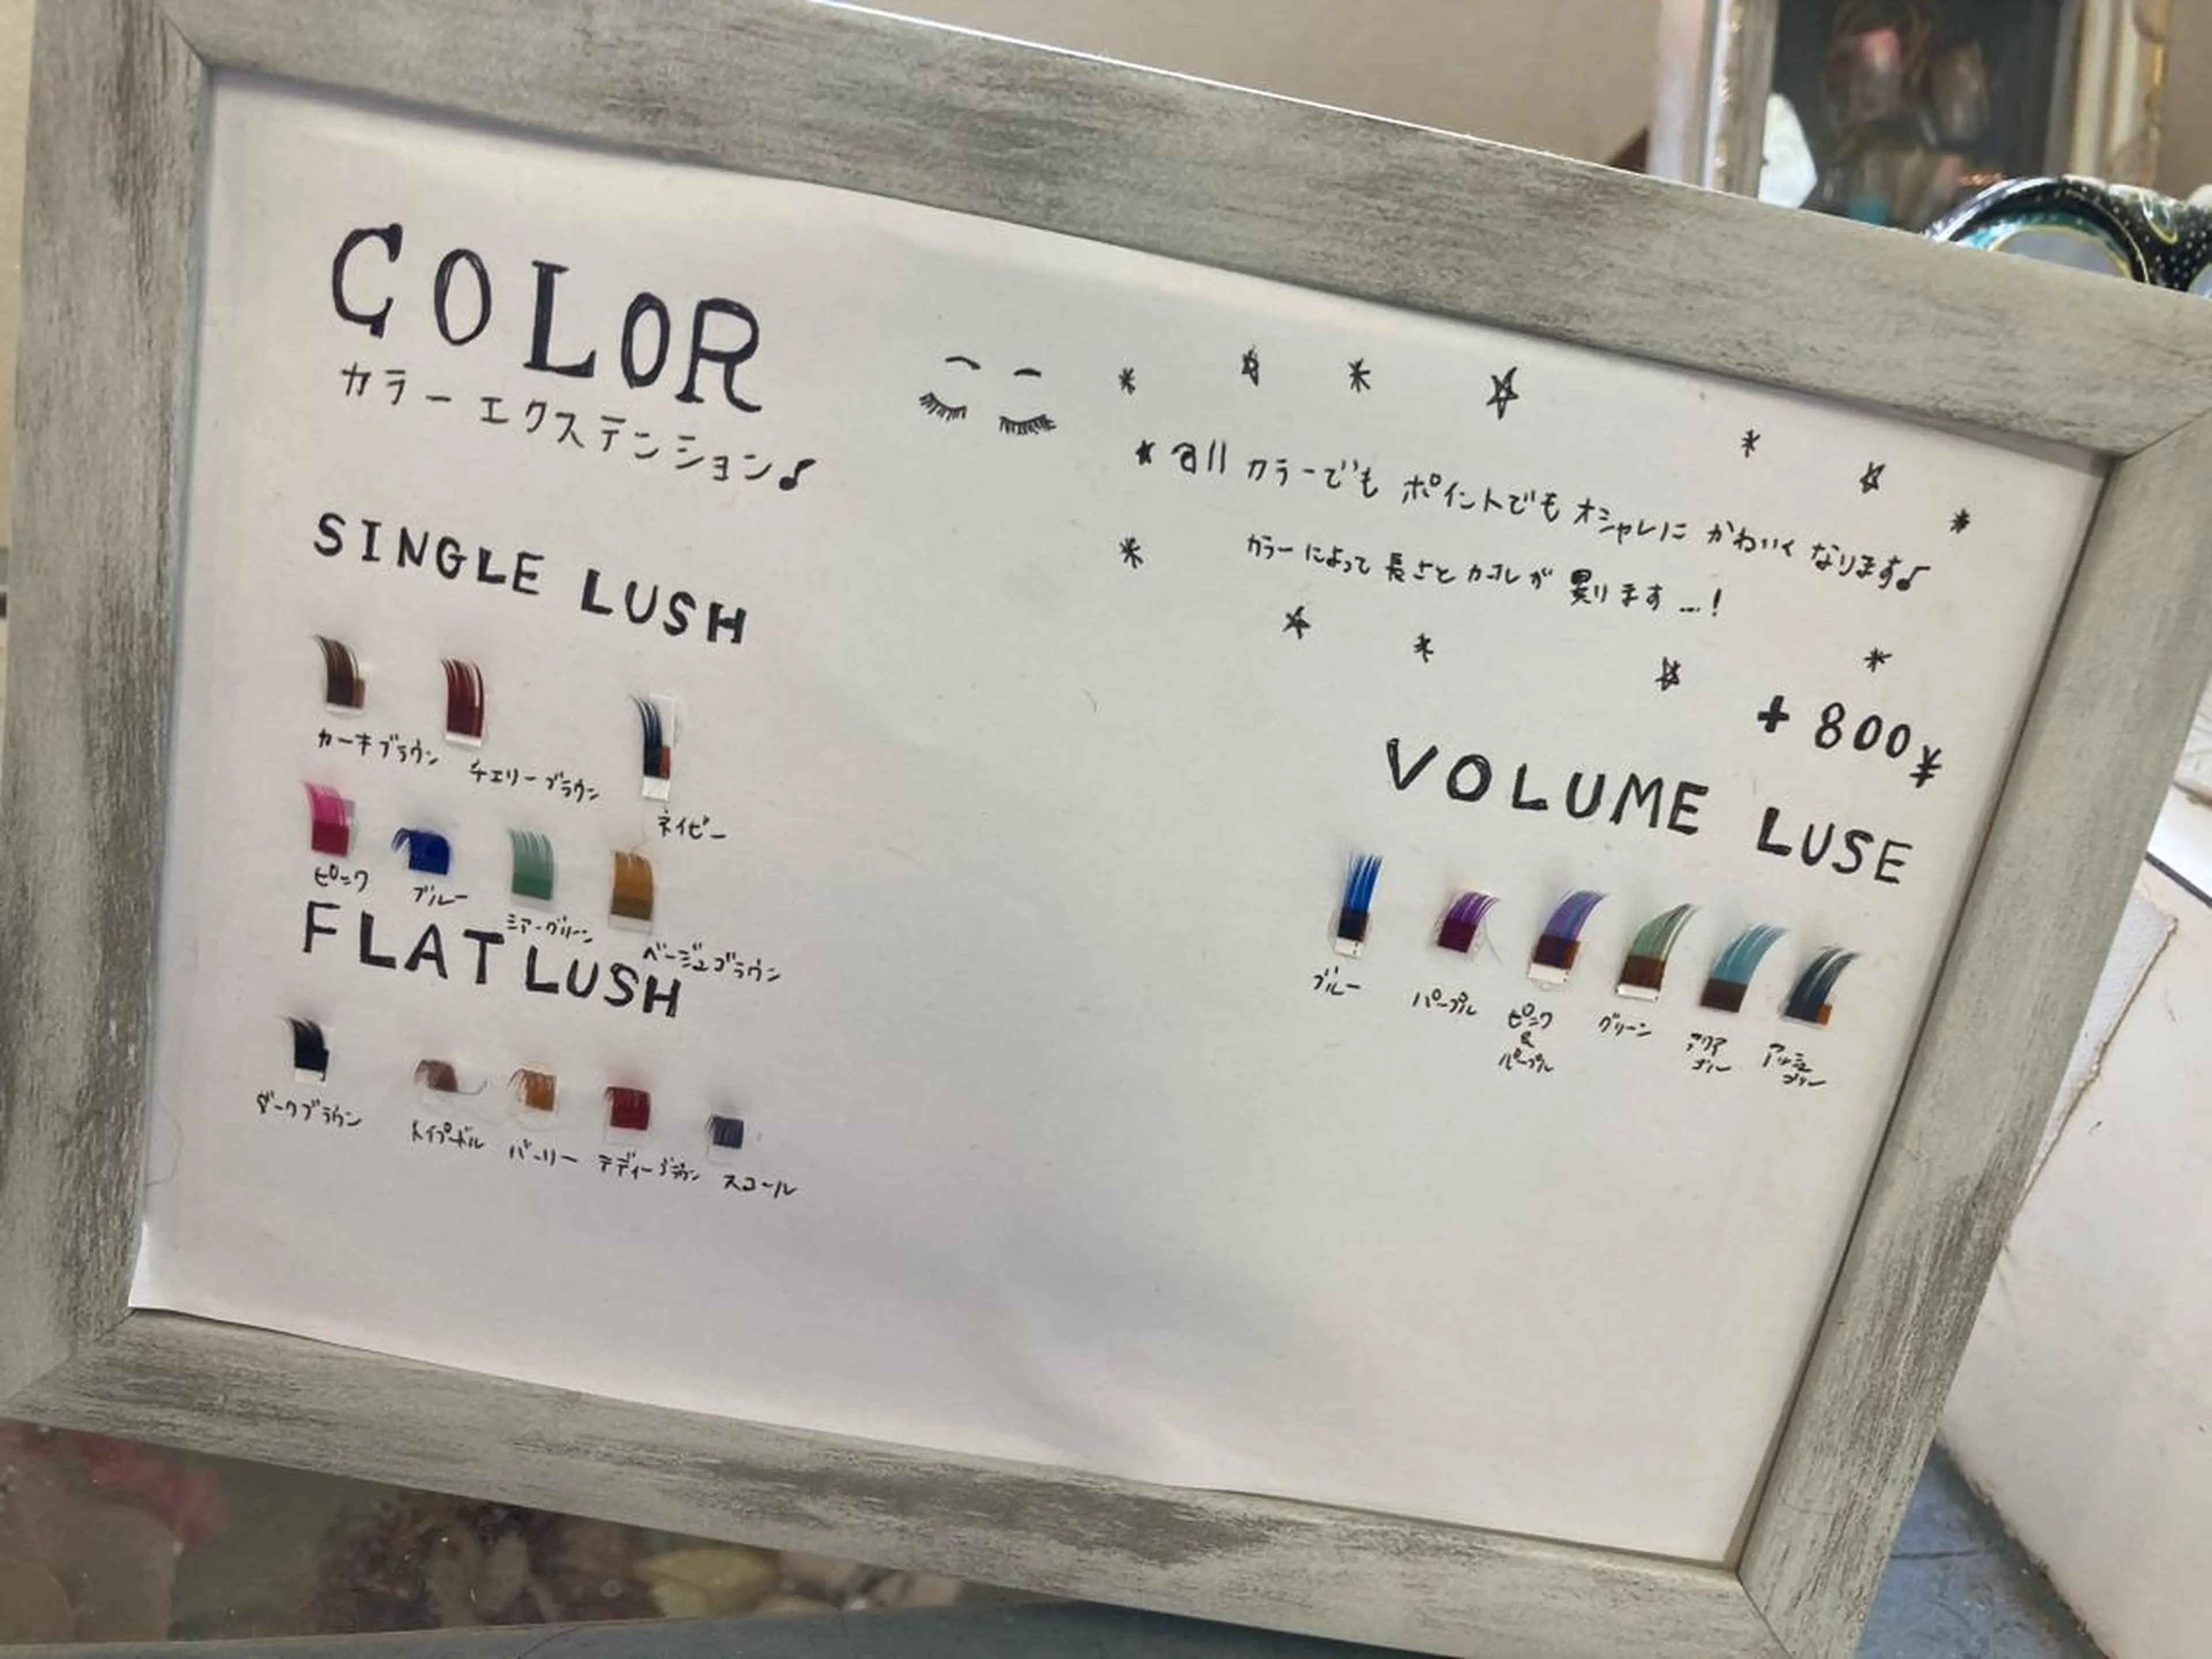 COLOR
カラーエクステンション♪
all カラーでも ポイントでも オシャレに かわいく なります♪
カラーによって 長さと カールが 異ります…!
SINGLE LUSH
カーキブラウン チェリーブラウン ネイビー
ピンク ブルー ミアーグリーン ベージュブラウン
FLAT LUSH
ダークブラウン トイプードル バーリー テディーブラウン スコール
+800¥
VOLUME LUSE
ブルー パープル ピンク&パープル グリーン アクアブルー アッシュブルー